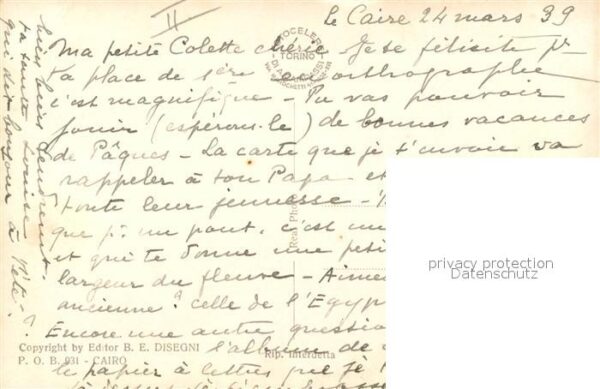 II
le Caire 24 mars 39
Ma petite Colette chérie Je te félicite pr
ta place de 1ère en orthographie
c'est magnifique - Tu vas pouvoir
jouir (espérons-le) de bonnes vacances
de Pâques - La carte que je t'envoie va
rappeler à ton Papa et
toute leur jeunesse -
que pr un pont, c'est un
et qui te donne une peti
largeur du fleuve - Aime
ancienne? celle de l'Egyp
Encore une autre question
l'album de
le papier à lettres que je
TORINO
Real Photo
Copyright by Editor B. E. DISEGNI
P. O. B. 931 - CAIRO
Rip. Interdetta
privacy protection
Datenschutz
bien tendrement
ta tante Louise
qui dit bonjour à